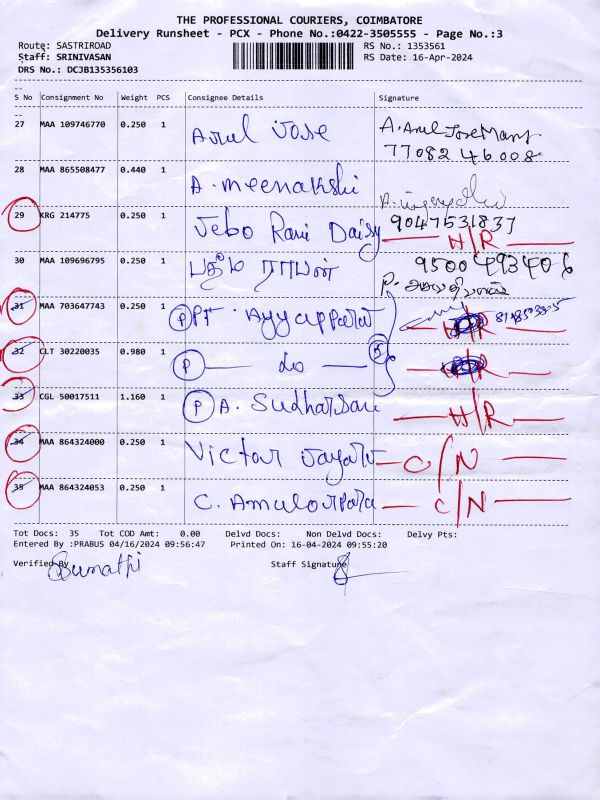 THE PROFESSIONAL COURIERS, COIMBATORE
Delivery Runsheet - PCX - Phone No.:0422-3505555 - Page No.:3
Route: SASTRIROAD RS No.: 1353561
Staff: SRINIVASAN RS Date: 16-Apr-2024
DRS No.: DCJB135356103
S No Consignment No Weight PCS Consignee Details Signature
27 MAA 109746770 0.250 1 Arul Jose A. Arul Jose Mary
77082 46008
28 MAA 865508477 0.440 1 A. Meenakshi
29 KRG 214775 0.250 1 Jebo Rani Daisy 9047531837
H/R
30 MAA 109696795 0.250 1 பதிம நாராயன் 95004 93406
31 MAA 703647743 0.250 1 P PF. Ayyappan H/R
32 CLT 30220035 0.980 1 P — do — H/R
33 CGL 50017511 1.160 1 P A. Sudharsan H/R
34 MAA 864324000 0.250 1 Victor C/N
35 MAA 864324053 0.250 1 C. C/N
Tot Docs: 35 Tot COD Amt: 0.00 Delvd Docs: Non Delvd Docs: Delvy Pts:
Entered By :PRABUS 04/16/2024 09:56:47 Printed On: 16-04-2024 09:55:20
Verified By Sumathi Staff Signature